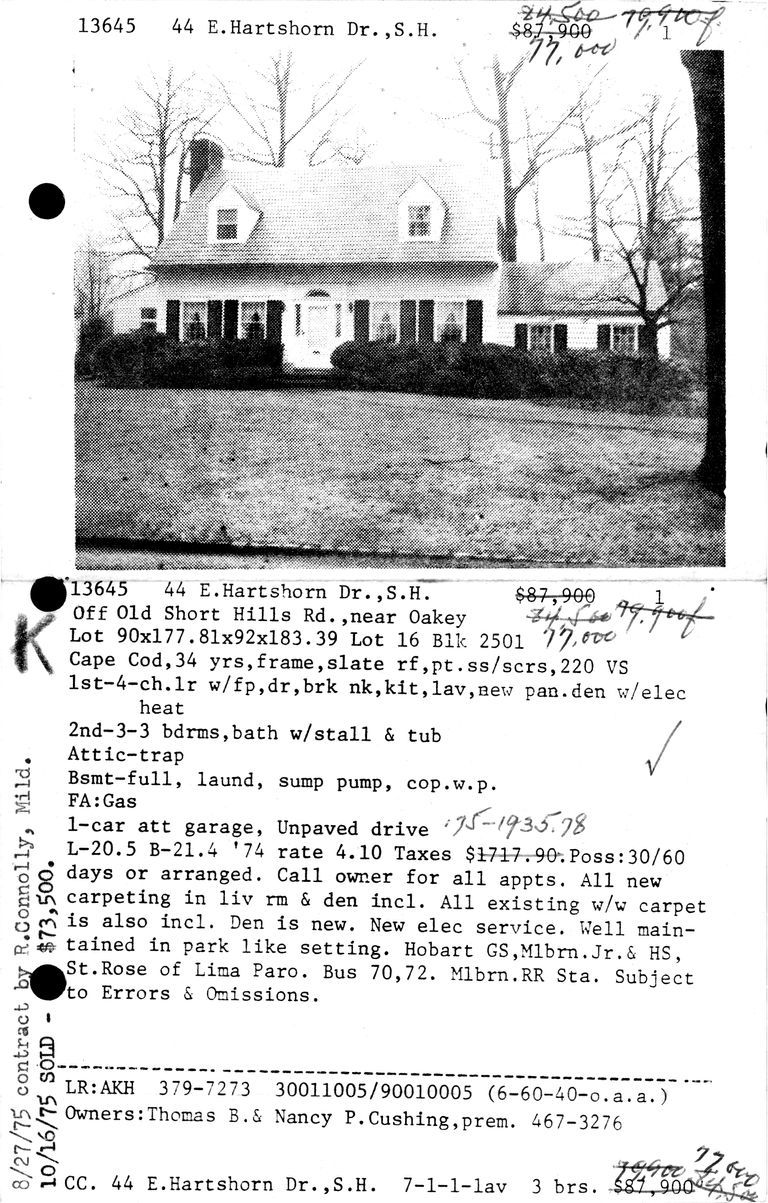 13645 44 E.Hartshorn Dr.,S.H. $87,900 1
84,500 79,900
77,000
13645 44 E.Hartshorn Dr.,S.H. $87,900 1
Off Old Short Hills Rd.,near Oakey 84,500 79,900
Lot 90x177.81x92x183.39 Lot 16 Blk 2501 77,000
K
Cape Cod,34 yrs,frame,slate rf,pt.ss/scrs,220 VS
1st-4-ch.lr w/fp,dr,brk nk,kit,lav,new pan.den w/elec
heat
2nd-3-3 bdrms,bath w/stall & tub
Attic-trap
Bsmt-full, laund, sump pump, cop.w.p.
FA:Gas
1-car att garage, Unpaved drive '75-1935.78
L-20.5 B-21.4 '74 rate 4.10 Taxes $1717.90.Poss:30/60
days or arranged. Call owner for all appts. All new
carpeting in liv rm & den incl. All existing w/w carpet
is also incl. Den is new. New elec service. Well main-
tained in park like setting. Hobart GS,Mlbrn.Jr.& HS,
St.Rose of Lima Paro. Bus 70,72. Mlbrn.RR Sta. Subject
to Errors & Omissions.
8/27/75 contract by R.Connolly, Mild.
10/16/75 SOLD - $73,500.
LR:AKH 379-7273 30011005/90010005 (6-60-40-o.a.a.)
Owners:Thomas B.& Nancy P.Cushing,prem. 467-3276
79900 77,000
CC. 44 E.Hartshorn Dr.,S.H. 7-1-1-1av 3 brs. $87,900 84,500